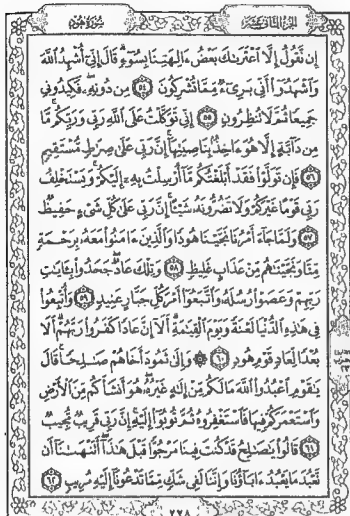 الجزء الثاني عشر
سورة هود
إِن نَّقُولُ إِلَّا ٱعْتَرَىٰكَ بَعْضُ ءَالِهَتِنَا بِسُوٓءٍ قَالَ إِنِّىٓ أُشْهِدُ ٱللَّهَ
وَٱشْهَدُوٓا۟ أَنِّى بَرِىٓءٌ مِّمَّا تُشْرِكُونَ ٥٤ مِن دُونِهِۦ فَكِيدُونِى
جَمِيعًا ثُمَّ لَا تُنظِرُونِ ٥٥ إِنِّى تَوَكَّلْتُ عَلَى ٱللَّهِ رَبِّى وَرَبِّكُم مَّا
مِن دَآبَّةٍ إِلَّا هُوَ ءَاخِذٌۢ بِنَاصِيَتِهَآ إِنَّ رَبِّى عَلَىٰ صِرَٰطٍ مُّسْتَقِيمٍ
٥٦ فَإِن تَوَلَّوْا۟ فَقَدْ أَبْلَغْتُكُم مَّآ أُرْسِلْتُ بِهِۦٓ إِلَيْكُمْ وَيَسْتَخْلِفُ
رَبِّى قَوْمًا غَيْرَكُمْ وَلَا تَضُرُّونَهُۥ شَيْـًٔا إِنَّ رَبِّى عَلَىٰ كُلِّ شَىْءٍ حَفِيظٌ
٥٧ وَلَمَّا جَآءَ أَمْرُنَا نَجَّيْنَا هُودًا وَٱلَّذِينَ ءَامَنُوا۟ مَعَهُۥ بِرَحْمَةٍ
مِّنَّا وَنَجَّيْنَٰهُم مِّنْ عَذَابٍ غَلِيظٍ ٥٨ وَتِلْكَ عَادٌ جَحَدُوا۟ بِـَٔايَٰتِ
رَبِّهِمْ وَعَصَوْا۟ رُسُلَهُۥ وَٱتَّبَعُوٓا۟ أَمْرَ كُلِّ جَبَّارٍ عَنِيدٍ ٥٩ وَأُتْبِعُوا۟
فِى هَٰذِهِ ٱلدُّنْيَا لَعْنَةً وَيَوْمَ ٱلْقِيَٰمَةِ أَلَآ إِنَّ عَادًا كَفَرُوا۟ رَبَّهُمْ أَلَا
بُعْدًا لِّعَادٍ قَوْمِ هُودٍ ٦٠ ۞ وَإِلَىٰ ثَمُودَ أَخَاهُمْ صَٰلِحًا قَالَ
يَٰقَوْمِ ٱعْبُدُوا۟ ٱللَّهَ مَا لَكُم مِّنْ إِلَٰهٍ غَيْرُهُۥ هُوَ أَنشَأَكُم مِّنَ ٱلْأَرْضِ
وَٱسْتَعْمَرَكُمْ فِيهَا فَٱسْتَغْفِرُوهُ ثُمَّ تُوبُوٓا۟ إِلَيْهِ إِنَّ رَبِّى قَرِيبٌ مُّجِيبٌ
٦١ قَالُوا۟ يَٰصَٰلِحُ قَدْ كُنتَ فِينَا مَرْجُوًّا قَبْلَ هَٰذَآ أَتَنْهَىٰنَآ أَن
نَّعْبُدَ مَا يَعْبُدُ ءَابَآؤُنَا وَإِنَّنَا لَفِى شَكٍّ مِّمَّا تَدْعُونَآ إِلَيْهِ مُرِيبٍ ٦٢
٢٢٨